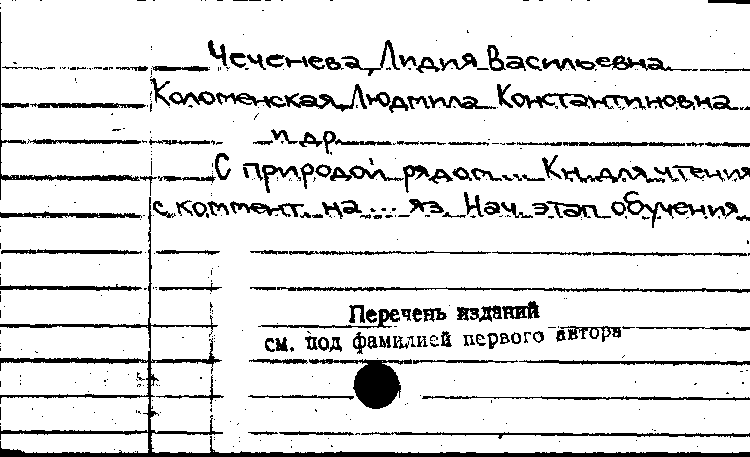 Чеченева, Лидия Васильевна
Коломенская, Людмила Константиновна
и др.
С природой рядом... Кн. для чтения
с коммент. на ... яз. Нач. этап обучения
Перечень изданий
см. под фамилией первого автора